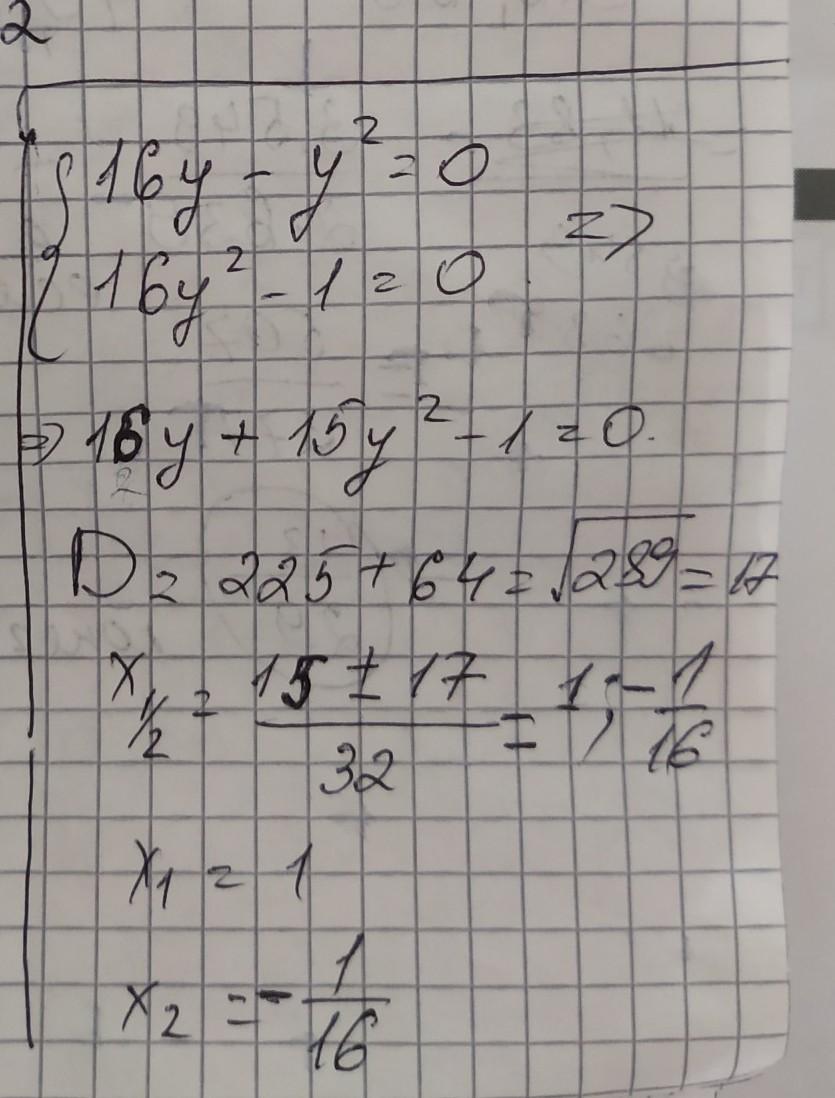 2
16y - y² = 0
=>
16y² - 1 = 0
=> 16y + 15y² - 1 = 0.
2
D = 225 + 64 = √289 = 17
x1/2 = (15 ± 17)/32 = 1; -1/16
x₁ = 1
x₂ = -1/16